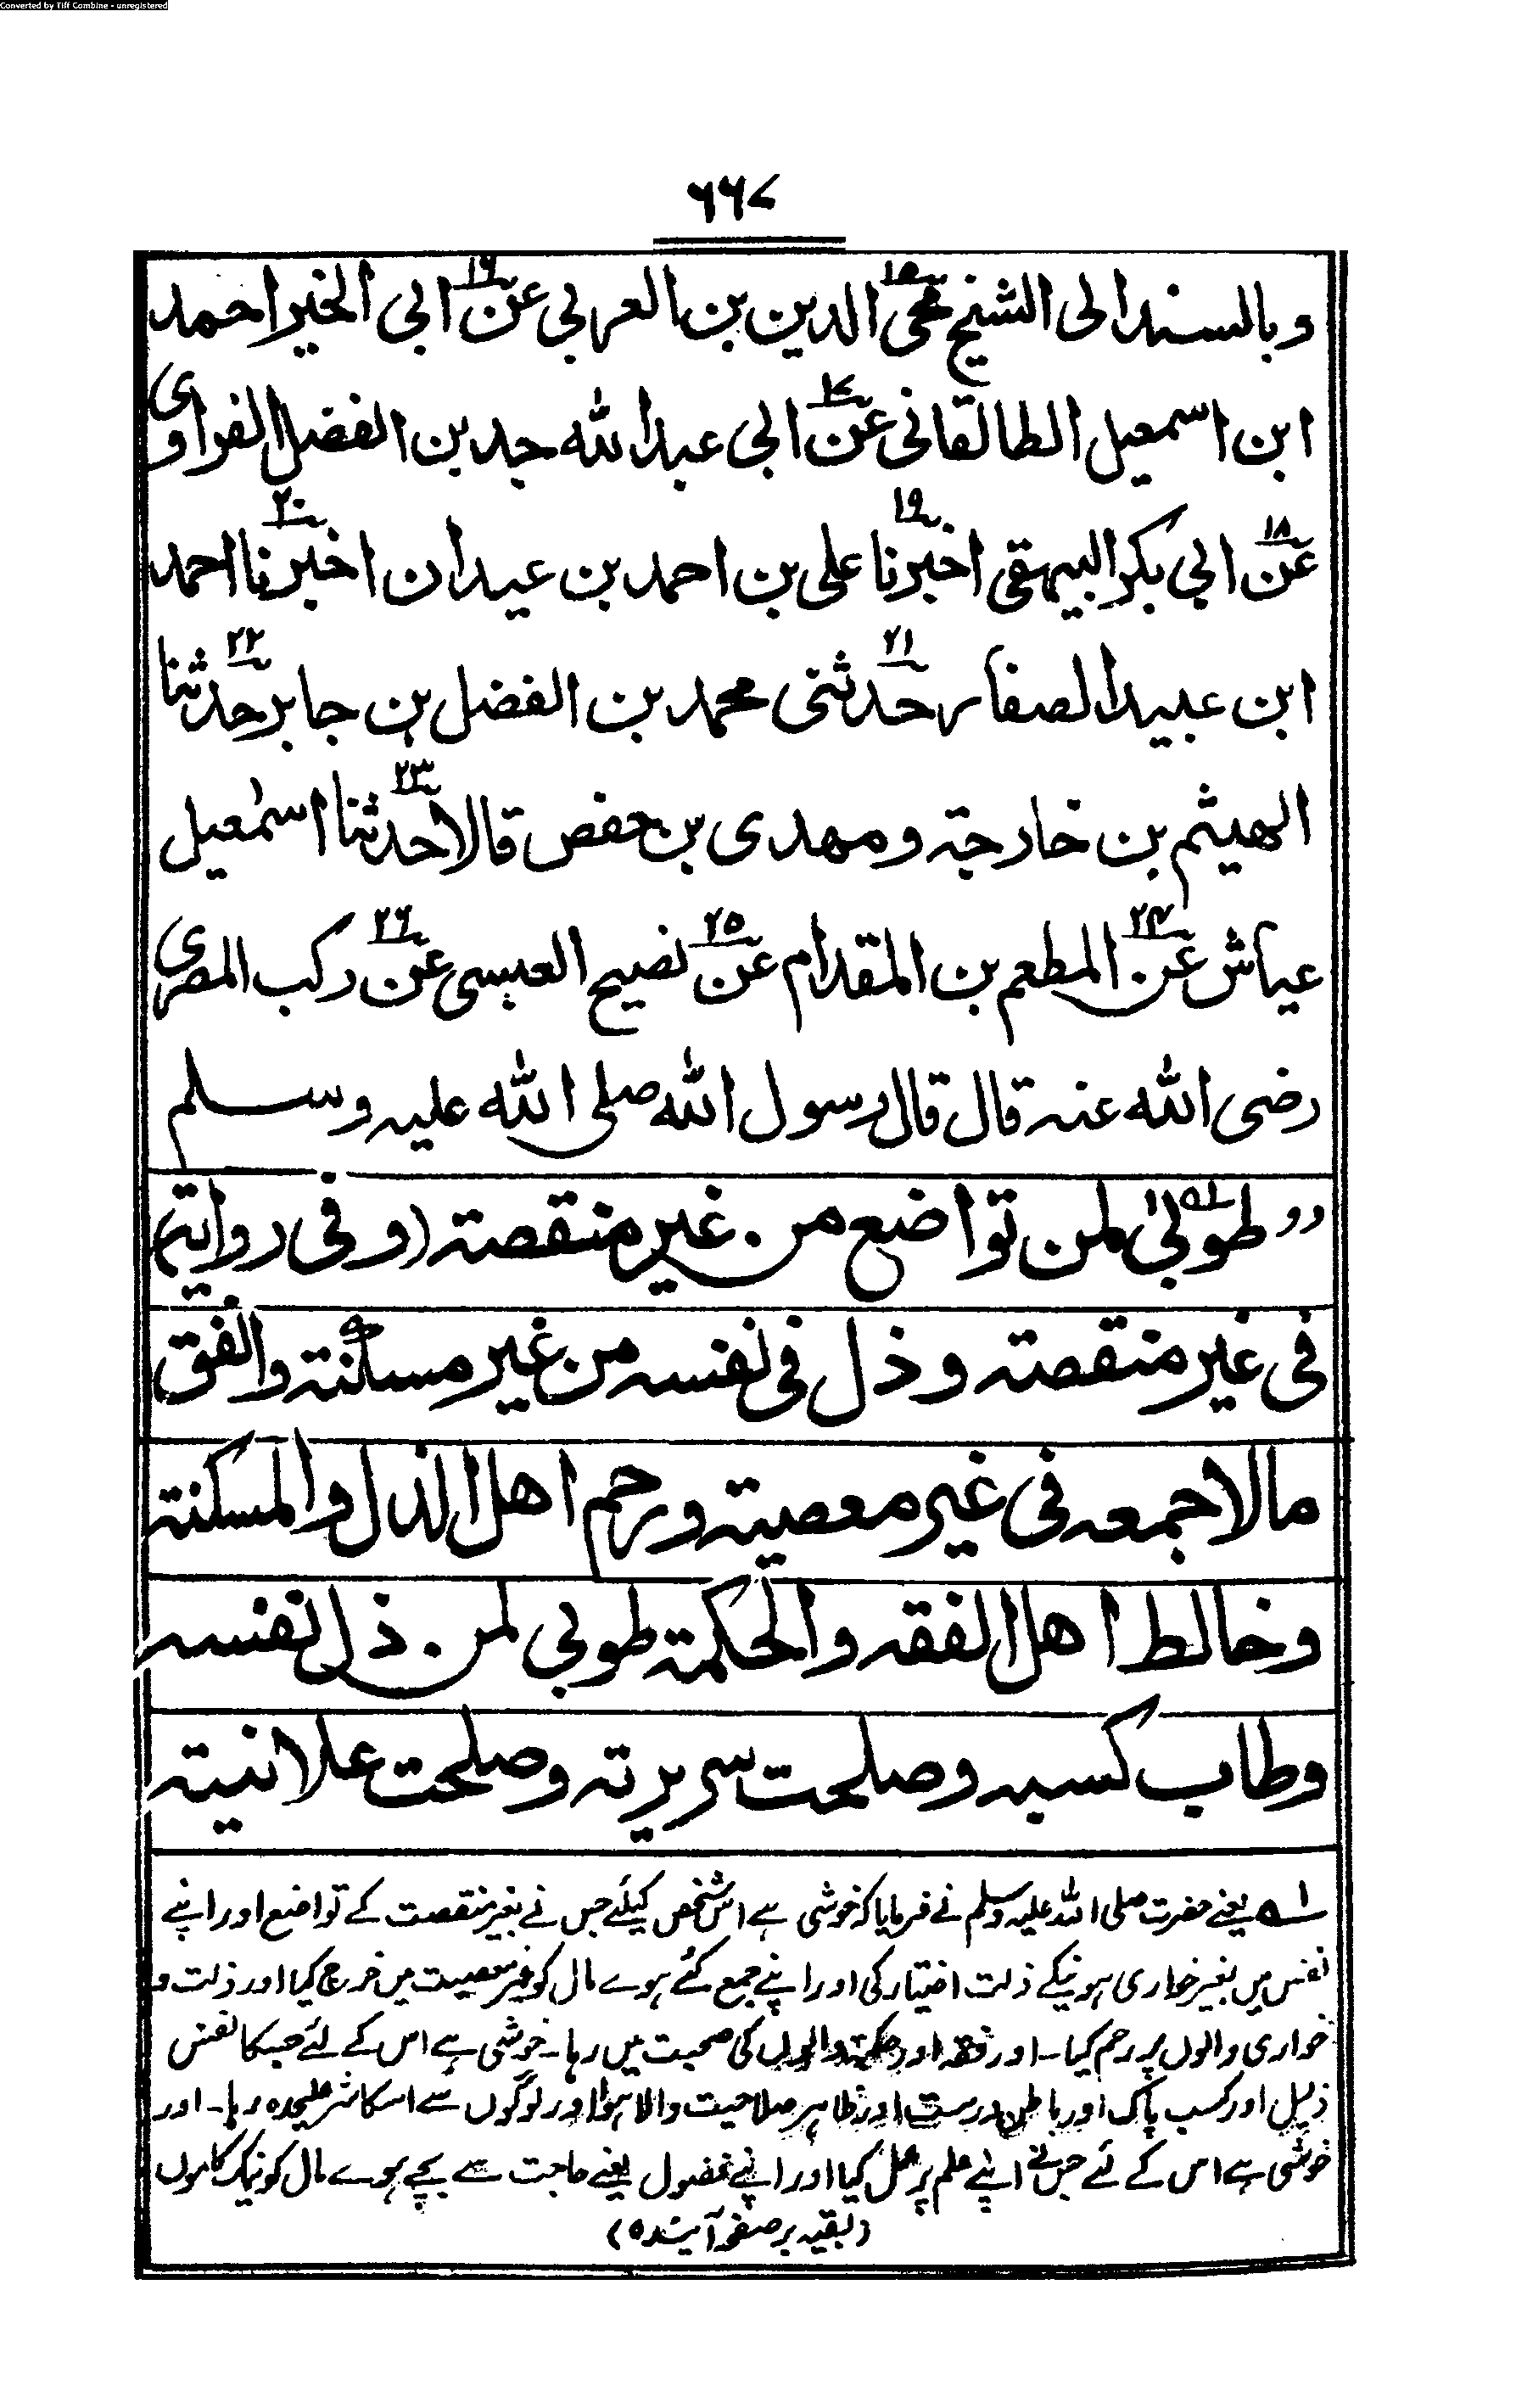 Converted by Tiff Combine - unregistered
۶۶۷
وبالسند الى الشيخ محى الدين بن العربي عن ابي الخير احمد
۱۵ ۱۶
ابن اسمعيل الطالقانى عن ابى عبد الله جد بن الفضل الفراوى
۱۷
عن ابي بكر البيهقى اخبرنا على بن احمد بن عيدان اخبرنا احمد
۱۸ ۱۹ ۲۰
ابن عبيد الصفار حدثنى محمد بن الفضل بن جابر حدثنا
۲۱ ۲۲
الهيثم بن خارجة ومهدى بن حفص قالا حدثنا اسمٰعيل
۲۳
عياش عن المطعم بن المقدام عن نصيح العبسى عن ركب المصرى
۲۴ ۲۵ ۲۶
رضى الله عنه قال قال رسول الله صلى الله عليه وسلم
"طوبىٰ لمن تواضع من غير منقصة (وفى رواية)
فى غير منقصة وذل فى نفسه من غير مسكنة وانفق
مالا جمعه فى غير معصية ورحم اهل الذل والمسكنة
وخالط اهل الفقه والحكمة طوبي لمن ذل نفسه
وطاب كسبه وصلحت سريرته وصلحت علانيته
۱ یعنے حضرت صلی اللہ علیہ وسلم نے فرمایا کہ خوشی ہے اس شخص کیلئے جس نے بغیر منقصت کے تواضع اور اپنے
نفس میں بغیر خواری ہونیکے ذلت اختیار کی اور اپنے جمع کئے ہوے مال کو غیر معصیت میں خرچ کیا اور ذلت و
خواری والوں پر رحم کیا۔ اور فقہ اور حکمت والوں کی صحبت میں رہا۔ خوشی ہے اس کے لئے جسکا نفس
ذلیل اور کسب پاک اور باطن درست اور ظاہر صلاحیت والا ہو اور لوگوں سے اسکا شر علیحدہ رہا۔ اور
خوشی ہے اس کے لئے جس نے اپنے علم پر عمل کیا اور اپنے فضول یعنے حاجت سے بچے ہوے مال کو نیک کاموں
(بقیہ بر صفحہ آیندہ)